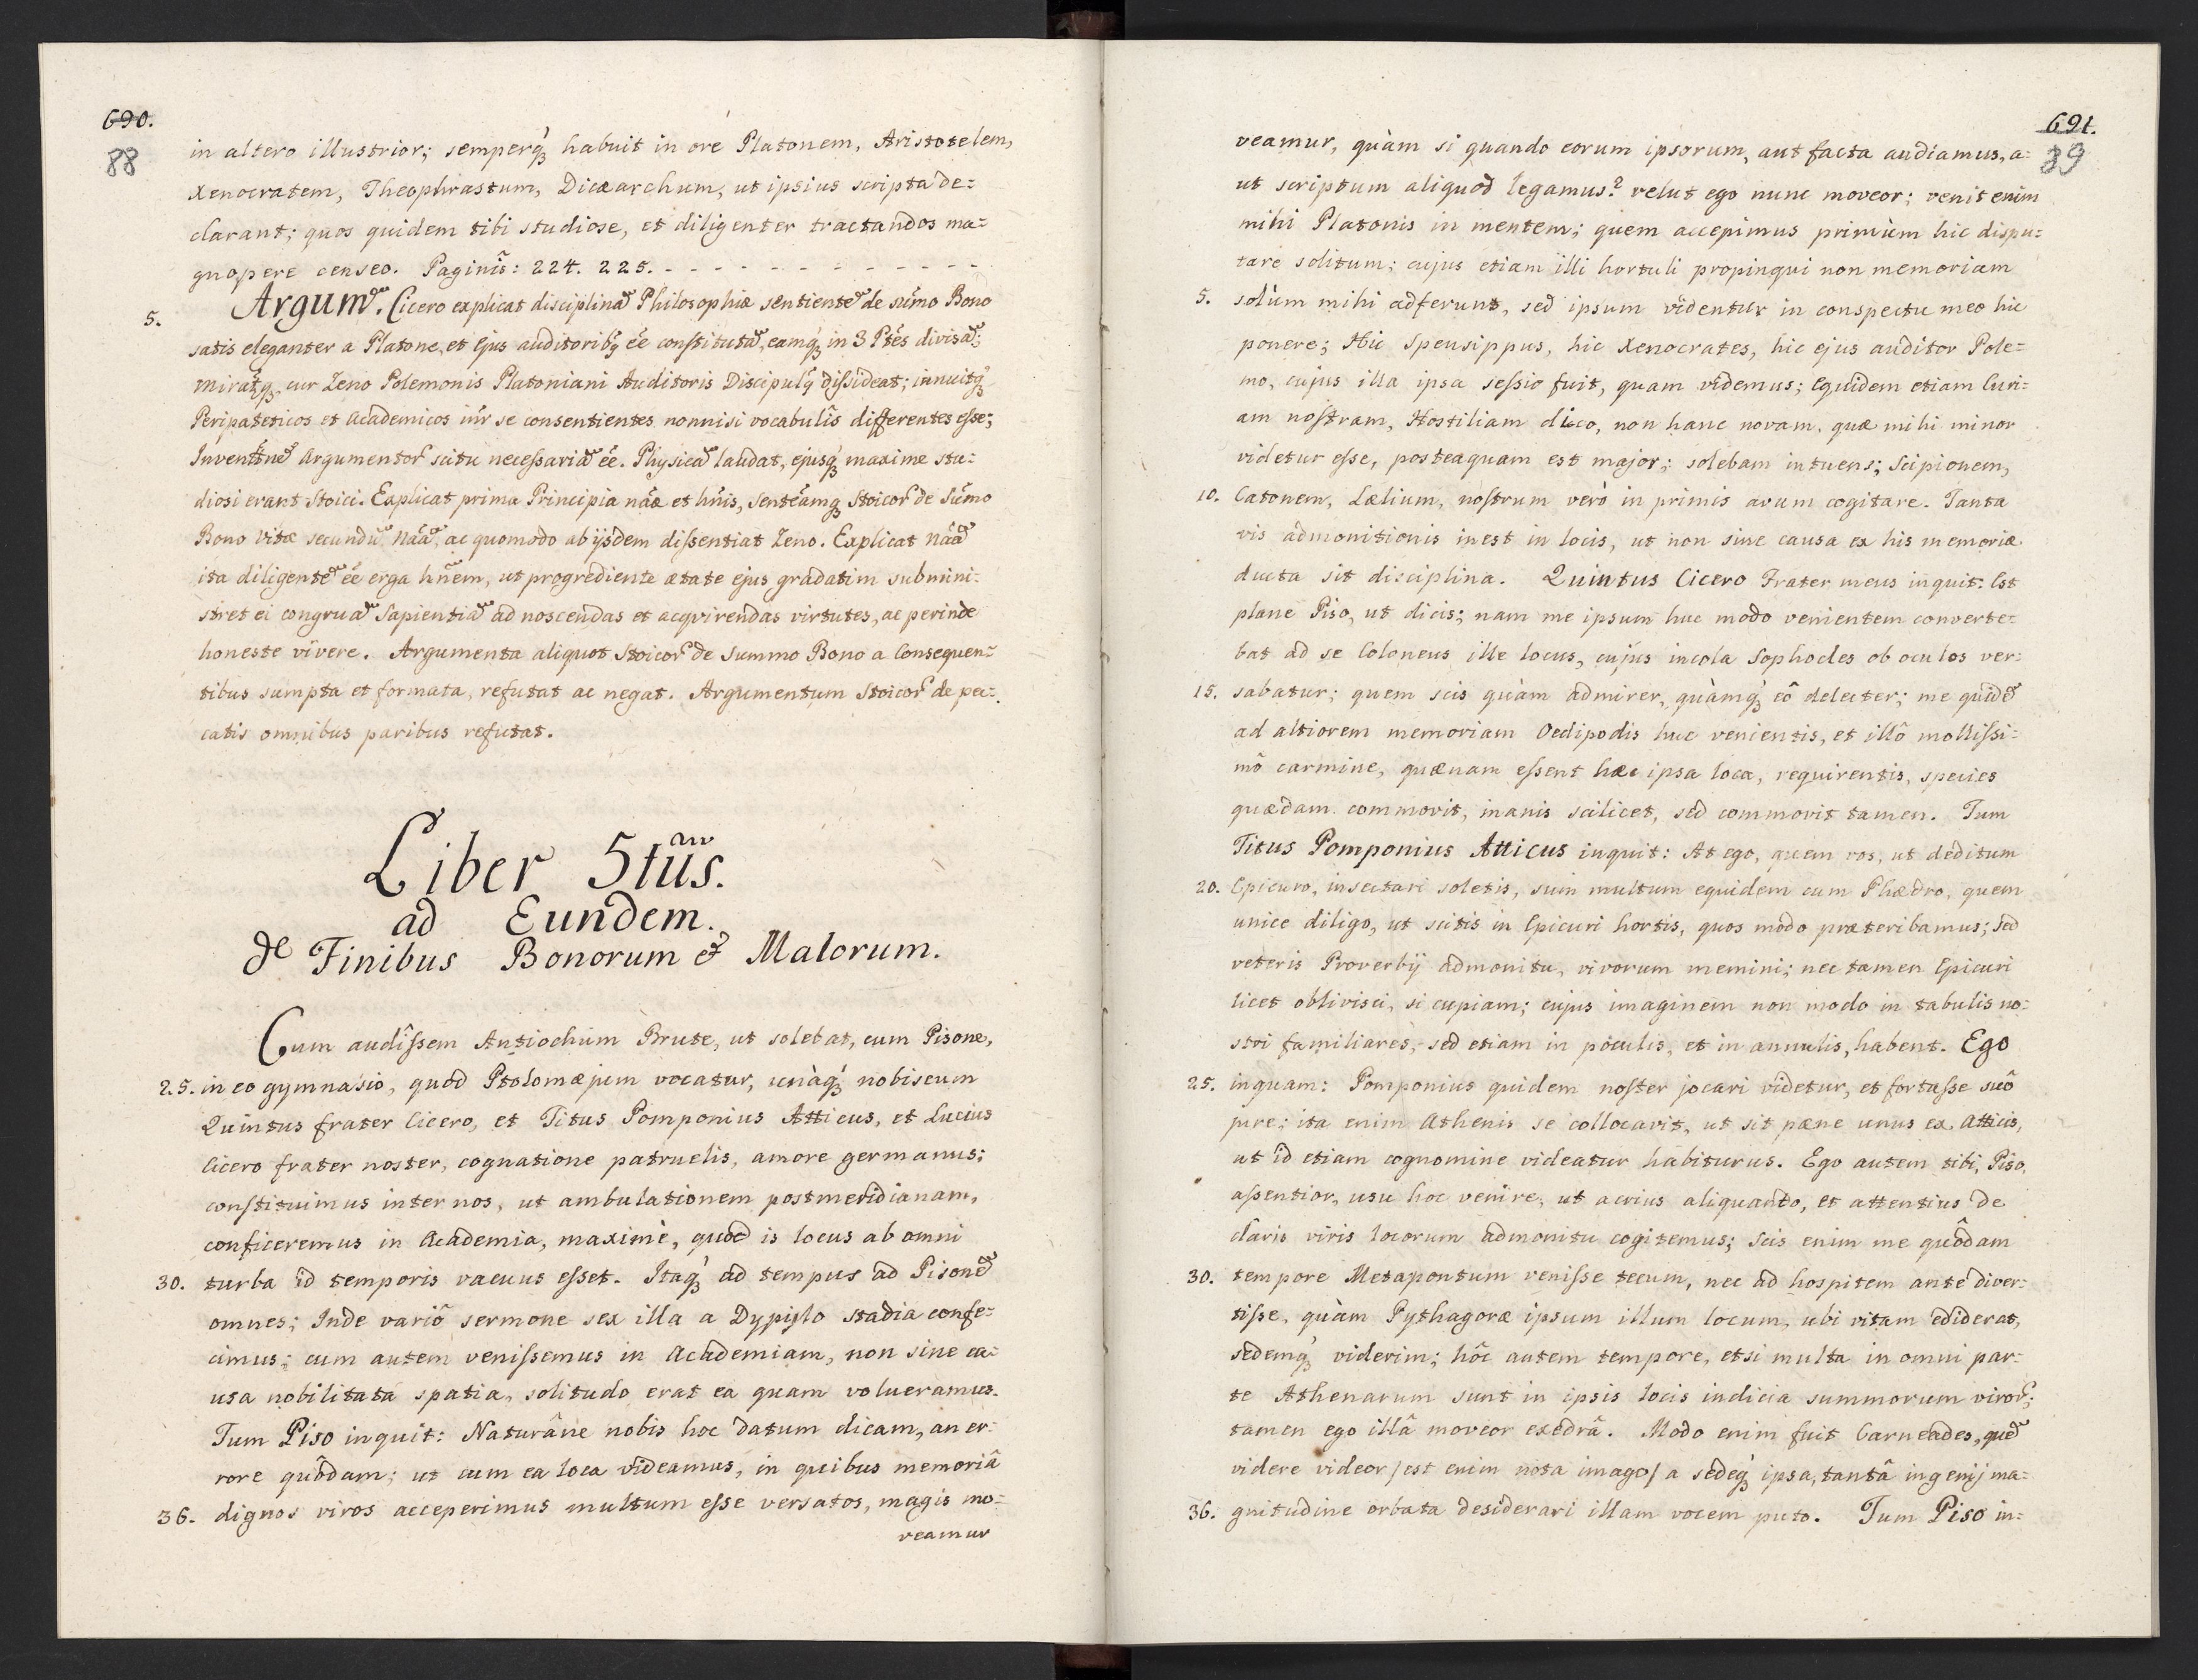 690.
88
in altero illustrior; semperq́ꝫ habuit in ore Platonem, Aristotelem,
Xenocratem, Theophrastum, Dicæarchum, ut ipsius scripta de=
clarant; quos quidem tibi studiose, et diligenter tractandos ma=
gnopere censeo. Paginis̃: 224. 225. - - - - - - - - - - - -
5. Argumm̃. Cicero explicat disciplinam̃ Philosophiæ sentientem̃ de sum̃o Bono
satis eleganter a Platone, et ejus auditoribꝫ ée constitutam̃, eamq́ꝫ in 3 Ptés divisam̃;
miratq́ꝫ, cur Zeno Polemonis Platoniani Auditoris Discipulꝫ dißideat; innuitq́ꝫ
Peripateticos et Academicos intr̃ se consentientes nonnisi vocabulis̃ differentes eße;
Inventnem̃ Argumentor̃ scitu neceßariam̃ ée. Physicam̃ laudat, ejusq́ꝫ maxime stu=
diosi erant Stoici. Explicat prima Principia náæ et hñis, Sentéamqꝫ Stoicor̃ de Sum̃o
Bono Vitæ secundum̃ Náam̃, ac quomodo ab ijsdem dißentiat Zeno. Explicat Náam̃
ita diligentem̃ ée erga hñem, ut progrediente ætate ejus gradatim submini=
stret ei congruam̃ Sapientiam̃ ad noscendas et acqvirendas virtutes, ac perinde
honeste vivere. Argumenta aliquot Stoicor̃ de Summo Bono a Consequen=
tibus sumpta et formata, refutat ac negat. Argumentum Stoicor̃ de pec=
catis omnibus paribus refutat.
Liber 5tũs.
ad Eundem.
de Finibus Bonorum & Malorum.
Cum audîßem Antiochum Brute, ut solebat, cum Pisone,
25. in eo gymnasio, quod Ptolomæjum vocatur, unàq́ꝫ nobiscum
Quintus frater Cicero, et Titus Pomponius Atticus, et Lucius
Cicero frater noster, cognatione patruelis, amore germanus;
constituimus inter nos, ut ambulationem postmeridianam,
conficeremus in Academia, maximè, quod is locus ab omni
30. turba id temporis vacuus eßet. Itaq́ꝫ ad tempus ad Pisonem̃
omnes; Inde variô sermone sex illa a Dypijlo stadia confe=
cimus; cum autem venißemus in Academiam, non sine ca=
usa nobilitata spatia, solitudo erat ea quam volueramus.
Tum Piso inquit: Naturâne nobis hoc datum dicam, an er=
rore quôdam; ut cum ea loca videamus, in quibus memoriâ
36. dignos viros acceperimus multum eße versatos, magis mo=
veamur
691.
89
veamur, quàm si quando eorum ipsorum, aut facta audiamus, a=
ut scriptum aliquod legamus? velut ego nunc moveor; venit enim
mihi Platonis in mentem; quem accepimus primùm hic dispu=
tare solitum; cujus etiam illi hortuli propinqui non memoriam
5. solùm mihi adferunt, sed ipsum videntur in conspectu meo hic
ponere; Hic Speusippus, hic Xenocrates, hic ejus auditor Pole=
mo, cujus illa ipsa seßio fuit, quam videmus; Equidem etiam Curi=
am nostram, Hostiliam dico, non hanc novam, quæ mihi minor
videtur eße, posteaquam est major; solebam intuens; Scipionem,
10. Catonem, Lælium, nostrum verò in primis avum cogitare. Tanta
vis admonitionis inest in locis, ut non sine causa ex his memoriæ
ducta sit disciplina. Quintus Cicero Frater meus inquit: Est
plane Piso, ut dicis; nam me ipsum huc modo venientem converte=
bat ad se Coloneus ille locus, cujus incola Sophocles ob oculos ver=
15. sabatur; quem scis quàm admirer, quàmq́ꝫ eô delecter; me quidem̃
ad altiorem memoriam Oedipodis huc venientis, et illô mollißi=
mô carmine, quænam eßent hæc ipsa loca, requirentis, species
quædam commovit, inanis scilicet, sed commovit tamen. Tum
Titus Pomponius Atticus inquit: At ego, quem vos, ut deditum
20. Epicuro, insectari soletis, sum multum equidem cum Phædro, quem
unice diligo, ut scitis in Epicuri hortis, quos modo præteribamus; Sed
veteris Proverbij admonitu, vivorum memini; nec tamen Epicuri
licet oblivisci, si cupiam; cujus imaginem non modo in tabulis no=
stri familiares, sed etiam in poculis, et in annulis, habent. Ego
25. inquam: Pomponius quidem noster jocari videtur, et fortaße suô
jure; ita enim Athenis se collocavit, ut sit pæne unus ex Atticis,
ut id etiam cognomine videatur habiturus. Ego autem tibi, Piso,
aßentior, usu hoc venire, ut acrius aliquanto, et attentius de
claris viris locorum admonitu cogitemus; Scis enim me quôdam
30. tempore Metapontum veniße tecum, nec ad hospitem ante diver=
tiße, quàm Pythagoræ ipsum illum locum, ubi vitam ediderat,
sedemq́ꝫ viderim; hôc autem tempore, etsi multa in omni par=
te Athenarum sunt in ipsis locis indicia summorum viror̃;
tamen ego illâ moveor exedrâ. Modo enim fuit Carneades, quem̃
videre videor / est enim nota imago / a sedeq́ꝫ ipsa, tantâ ingenij ma=
36. gnitudine orbata desiderari illam vocem puto. Tum Piso in=